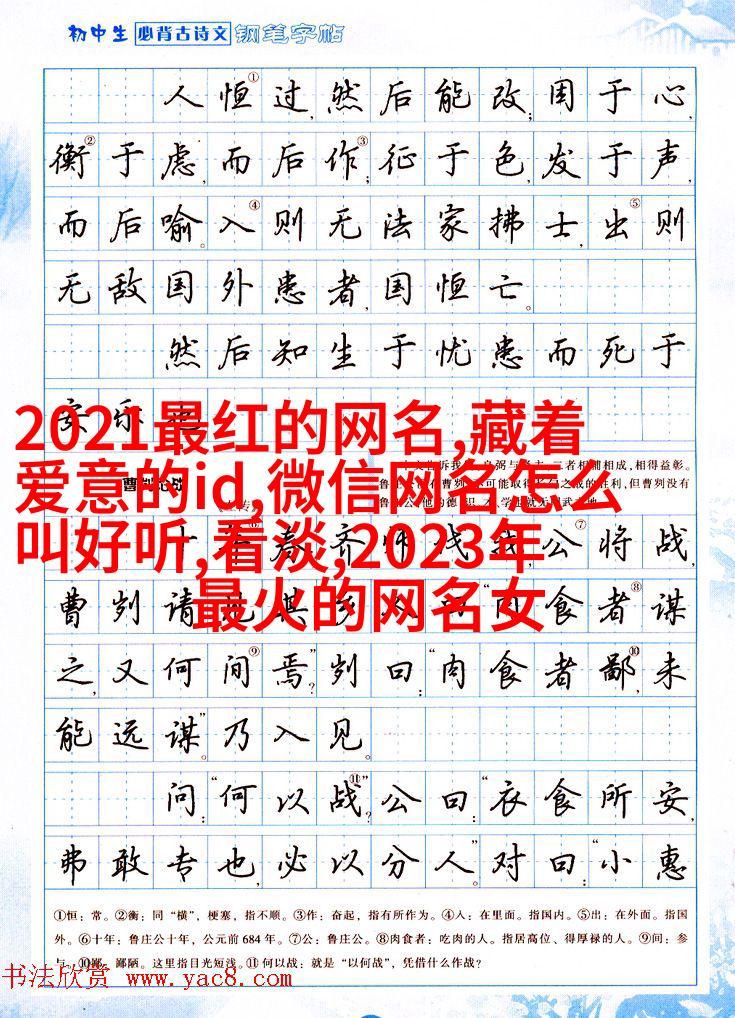 初中生 必背古诗文 钢笔字帖
人恒①过,然后能改;困于心,
衡②于虑,而后作③;征于色,发于声,
而后喻。入④则无法家拂士,出⑤则
无敌国外患者,国恒亡。
然后知生于忧患而死于
安乐也
2021最红的网名,藏着
爱意的id,微信网名怎么
叫好听,看淡,2023年
最火的网名女
春齐师伐我,公⑦将战,
曹刿请见其乡人曰“肉食者⑧谋
之,又何间⑨焉?”刿曰:“肉食者鄙⑩,未
能远谋。”乃入见。
问:“何以战⑪?”公曰:“衣食所安,
弗敢专也,必以分人。”对曰:“小惠
①恒:常。②衡:同“横”,梗塞,指不顺。③作:奋起,指有所作为。④入:在里面。指国内。⑤出:在外面。指国
外。⑥十年:鲁庄公十年,公元前684年。⑦公:鲁庄公。⑧肉食者:吃肉的人。指居高位、得厚禄的人。⑨间:参
与。⑩鄙:鄙陋。这里指目光短浅。⑪何以战:就是“以何战”,凭借什么作战?
书法欣赏 www.yac8.com